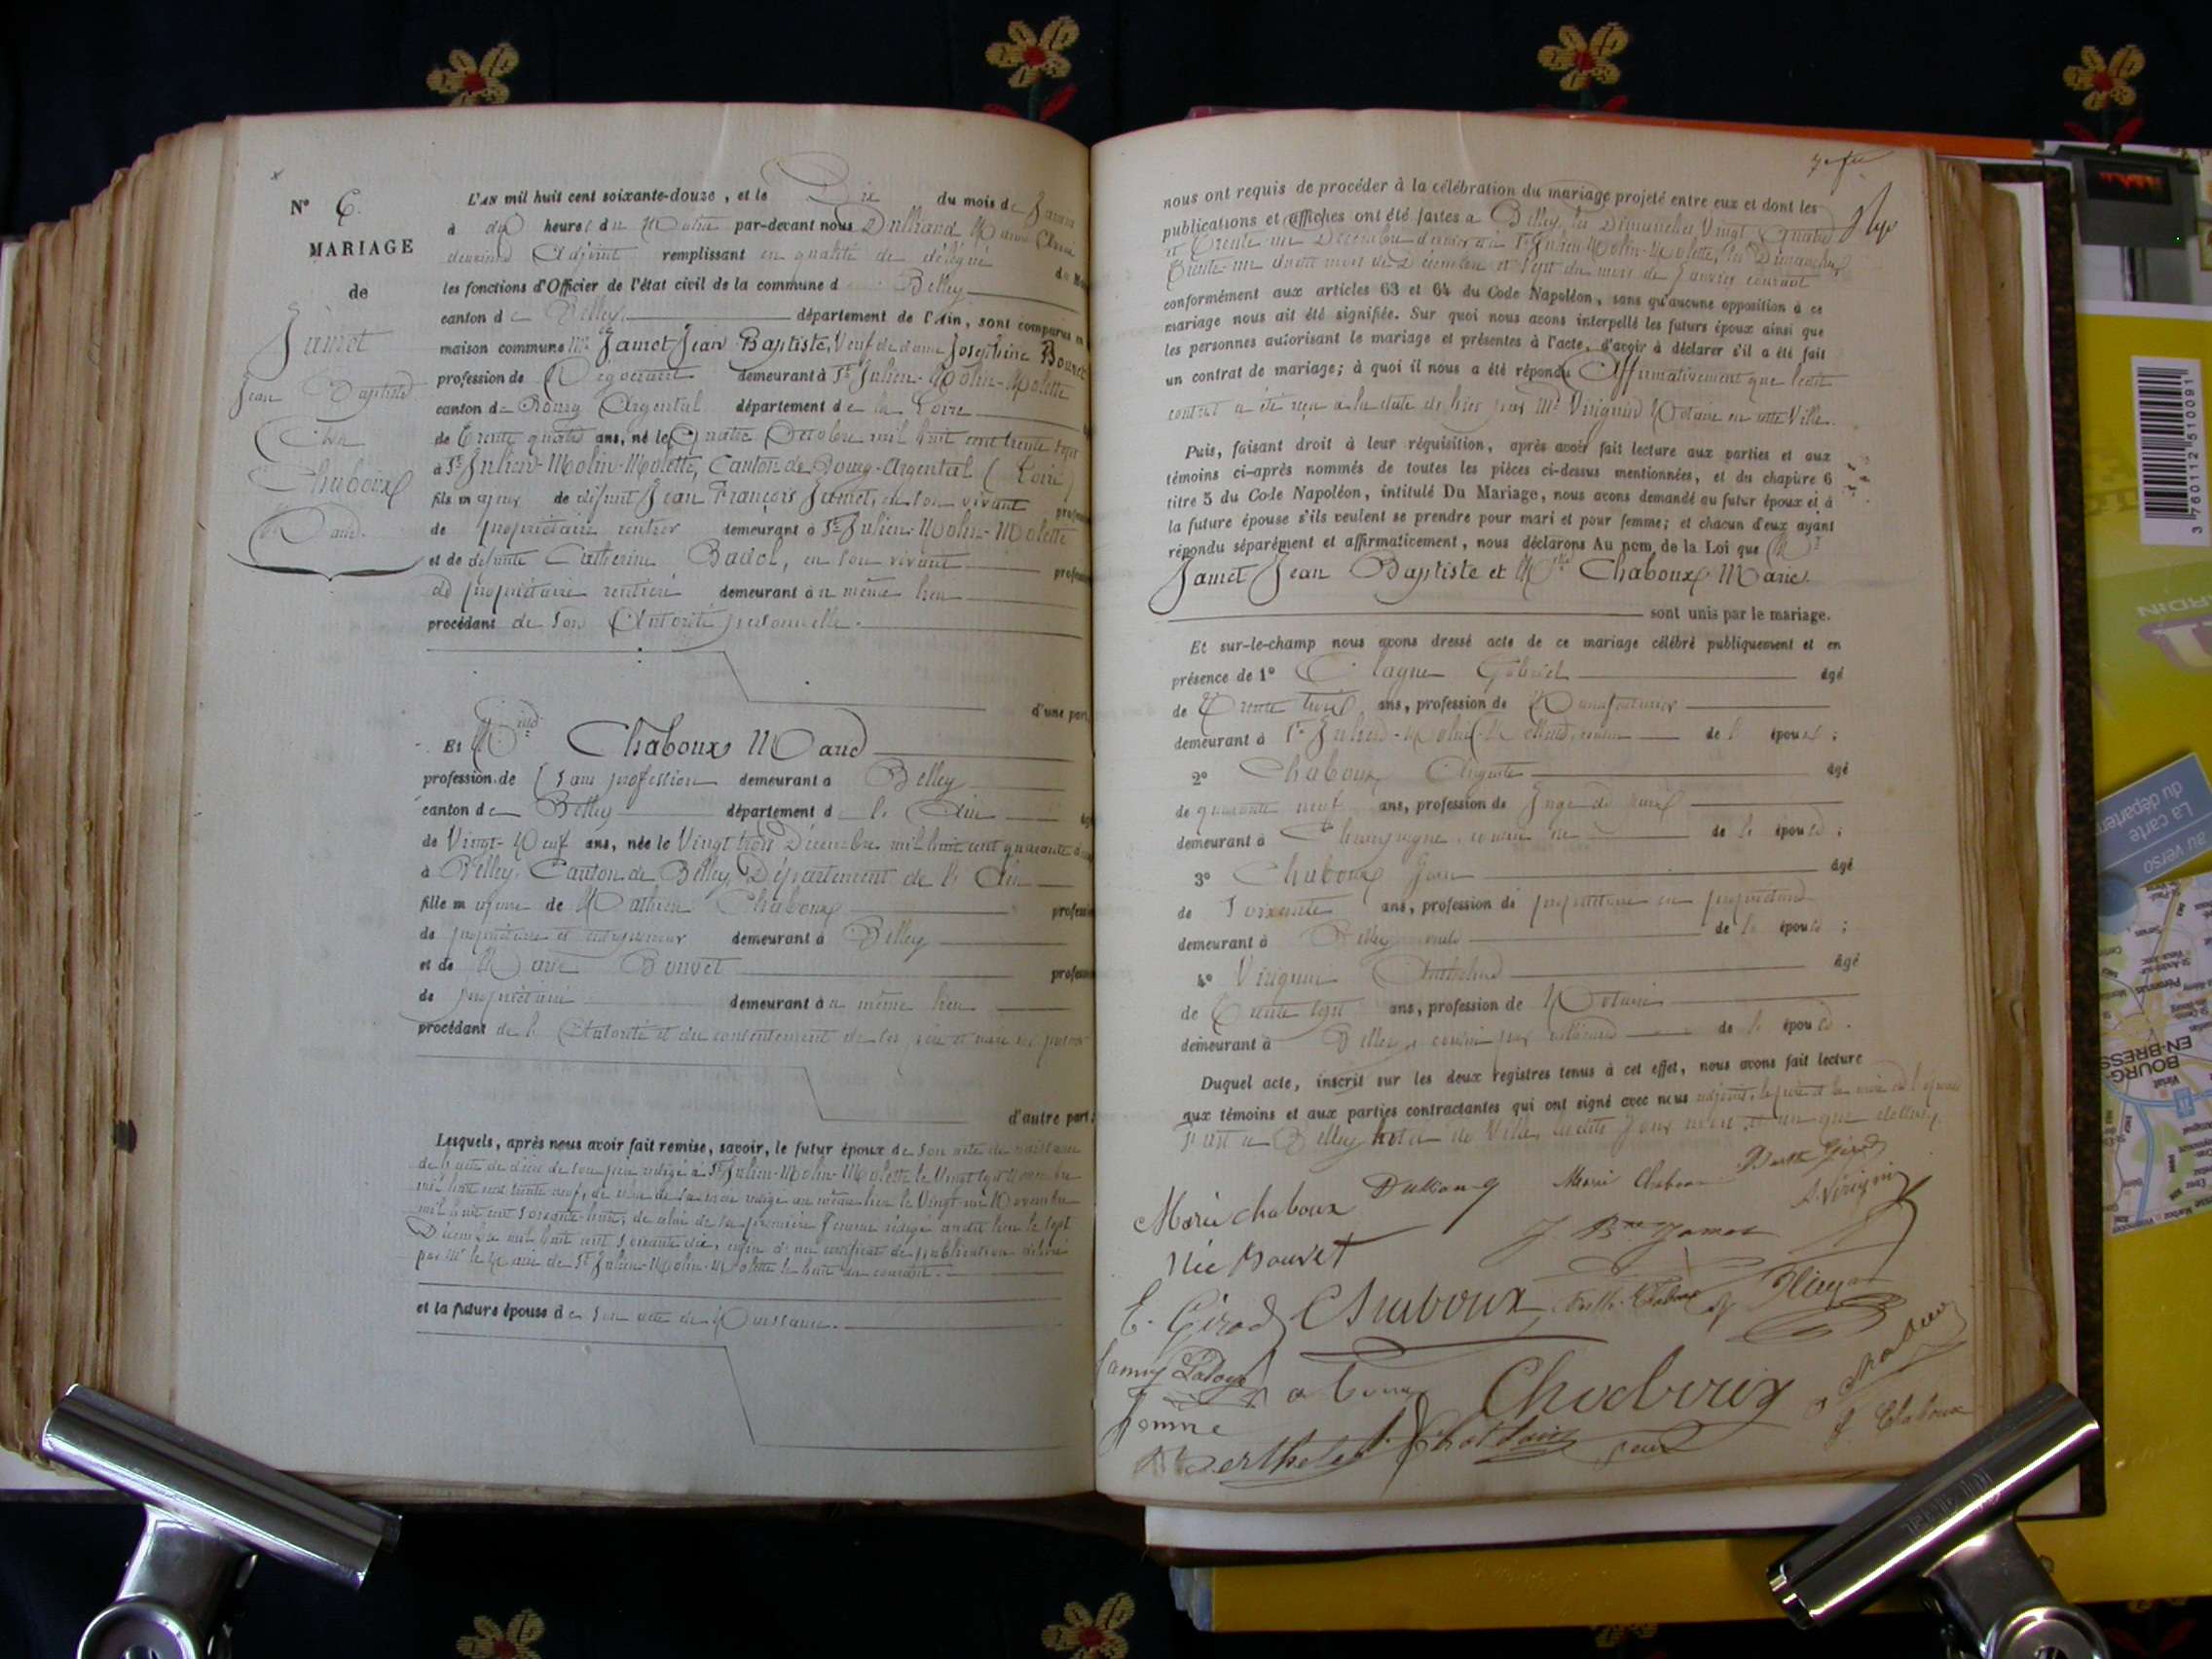 N° 6.
MARIAGE
de
Jamet
Jean Baptiste
Et
Chaboux
Marie.
L'AN mil huit cent soixante-douze, et le Dix du mois de Janvier
à dix heures du Matin par-devant nous Dullrand
deuxième Adjoint remplissant en qualité de délégué
les fonctions d'Officier de l'état civil de la commune d Belley
canton de Belley département de l'Ain, sont comparus en
maison commune Mr. Jamet Jean Baptiste, Veuf de dame Joséphine Bonnet
profession de Négociant demeurant à St Julien-Molin-Molette
canton de Bourg Argental département de la Loire
de trente quatre ans, né le Quatre Octobre mil huit cent trente sept
à St Julien-Molin-Molette, Canton de Bourg-Argental (Loire)
fils majeur de défunt Jean François Jamet, en son vivant
de propriétaire rentier demeurant à St Julien-Molin-Molette
et de défunte Catherine Badol, en son vivant
de propriétaire rentière demeurant au même lieu
procédant de son Autorité personnelle.
d'une part,
Et Melle Chaboux Marie
profession de (sans profession demeurant à Belley
canton de Belley département de l'Ain
de Vingt-Neuf ans, née le Vingt trois Décembre mil huit cent quarante deux
à Belley, Canton de Belley, Département de l'Ain
fille majeure de Mathieu Chaboux
de propriétaire et entrepreneur demeurant à Belley
et de Marie Bouvet
de propriétaire demeurant au même lieu
procédant de l'Autorité et du consentement de ses père et mère ici présents
d'autre part;
Lesquels, après nous avoir fait remise, savoir, le futur époux de son acte de naissance
de l'acte de décès de son père rédigé à St Julien-Molin-Molette le Vingt sept Novembre
mil huit cent trente neuf, de celui de sa mère rédigé au même lieu le Vingt-un Novembre
mil huit cent soixante-huit; de celui de sa première femme rédigé audit lieu le sept
Décembre mil huit cent soixante dix, enfin d'un certificat de publication délivré
par Mr le Maire de St Julien-Molin-Molette le huit du courant.
et la future épouse de son acte de Naissance.
nous ont requis de procéder à la célébration du mariage projeté entre eux et dont les
publications et affiches ont été faites à Belley, les Dimanches Vingt Quatre
et Trente un Décembre dernier et à St Julien-Molin-Molette, les Dimanches
Trente-un dudit mois de Décembre et Sept du mois de Janvier courant
conformément aux articles 63 et 64 du Code Napoléon, sans qu'aucune opposition à ce
mariage nous ait été signifiée. Sur quoi nous avons interpellé les futurs époux ainsi que
les personnes autorisant le mariage et présentes à l'acte, d'avoir à déclarer s'il a été fait
un contrat de mariage; à quoi il nous a été répondu Affirmativement que ledit
contrat a été reçu à la date de hier par Me Virignin Notaire en cette Ville.
Puis, faisant droit à leur réquisition, après avoir fait lecture aux parties et aux
témoins ci-après nommés de toutes les pièces ci-dessus mentionnées, et du chapitre 6
titre 5 du Code Napoléon, intitulé Du Mariage, nous avons demandé au futur époux et à
la future épouse s'ils veulent se prendre pour mari et pour femme; et chacun d'eux ayant
répondu séparément et affirmativement, nous déclarons Au nom de la Loi que Mr
Jamet Jean Baptiste et Melle Chaboux Marie.
sont unis par le mariage.
Et sur-le-champ nous avons dressé acte de ce mariage célébré publiquement et en
présence de 1° Gabriel âgé
de Trente trois ans, profession de Manufacturier
demeurant à St Julien-Molin-Molette, cousin de l'époux;
2° Chaboux Auguste âgé
de quarante neuf ans, profession de Juge de Paix
demeurant à Champagne, cousin de l'épouse;
3° Chaboux Jean âgé
de Soixante ans, profession de propriétaire
demeurant à Belley oncle de l'épouse;
4° Virignin Anthelme âgé
de Trente sept ans, profession de Notaire
demeurant à Belley cousin par alliance de l'épouse.
Duquel acte, inscrit sur les deux registres tenus à cet effet, nous avons fait lecture
aux témoins et aux parties contractantes qui ont signé avec nous adjoint, le père et la mère de l'épouse
Fait à Belley hôtel de Ville, ledits jour mois et an que dessus.
Marie chaboux
née Bouvet
Marie Chaboux
Berthe Girod
A. Virignin
J Bte Jamet
E. Girod
Chaboux
Chaboux
J. Chaboux
Berthelet
La carte
du départem
au verso
BOURG-
EN-BRESSE
3 760112 510091